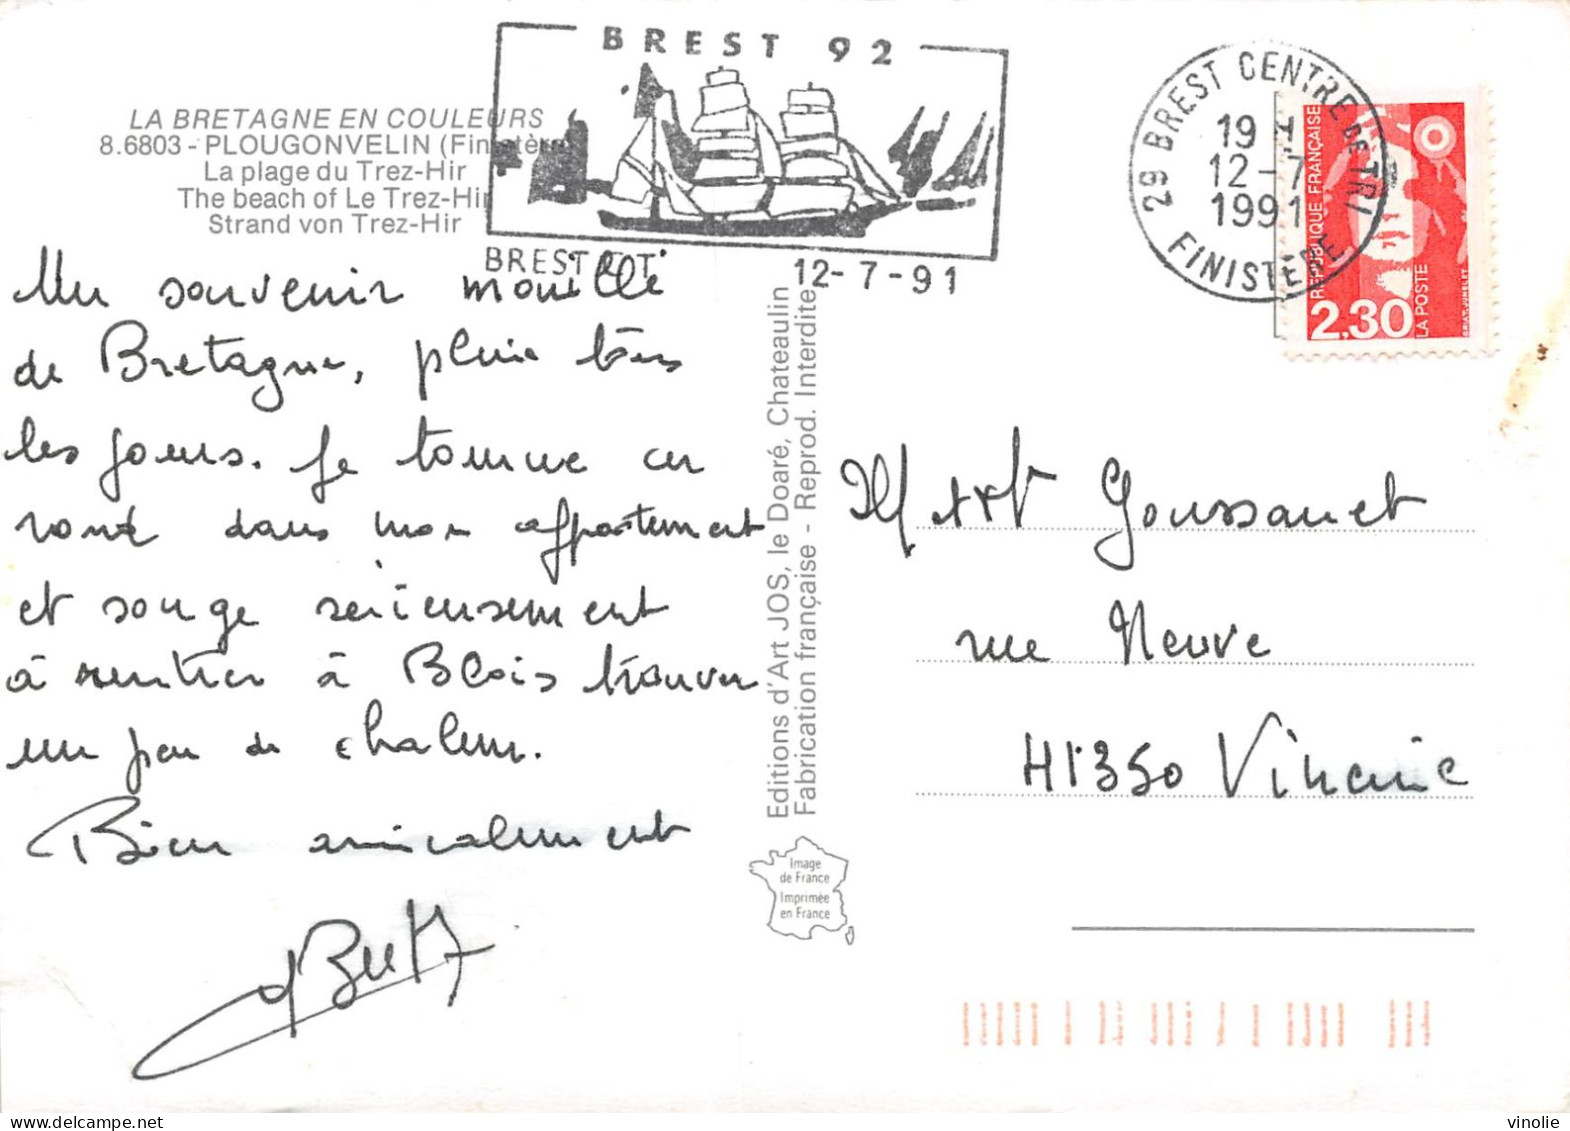 BREST 92
LA BRETAGNE EN COULEURS
8.6803 - PLOUGONVELIN (Finistère)
La plage du Trez-Hir
The beach of Le Trez-Hir
Strand von Trez-Hir
BREST R.T.
12-7-91
29 BREST CENTRE DE TRI
19 H
12-7
1991
FINISTERE
REPUBLIQUE FRANÇAISE
2,30
LA POSTE
BRIAT-JUMELET
Un souvenir mouillé
de Bretagne, pluie tous
les jours. Je tourne en
rond dans mon appartement
et songe sérieusement
à rentrer à Blois trouver
un peu de chaleur.
Bien amicalement
Editions d'Art JOS, le Doaré, Chateaulin
Fabrication française - Reprod. Interdite
Image
de France
Imprimée
en France
Goussanet
rue Neuve
41350 Vineuil
vinolie